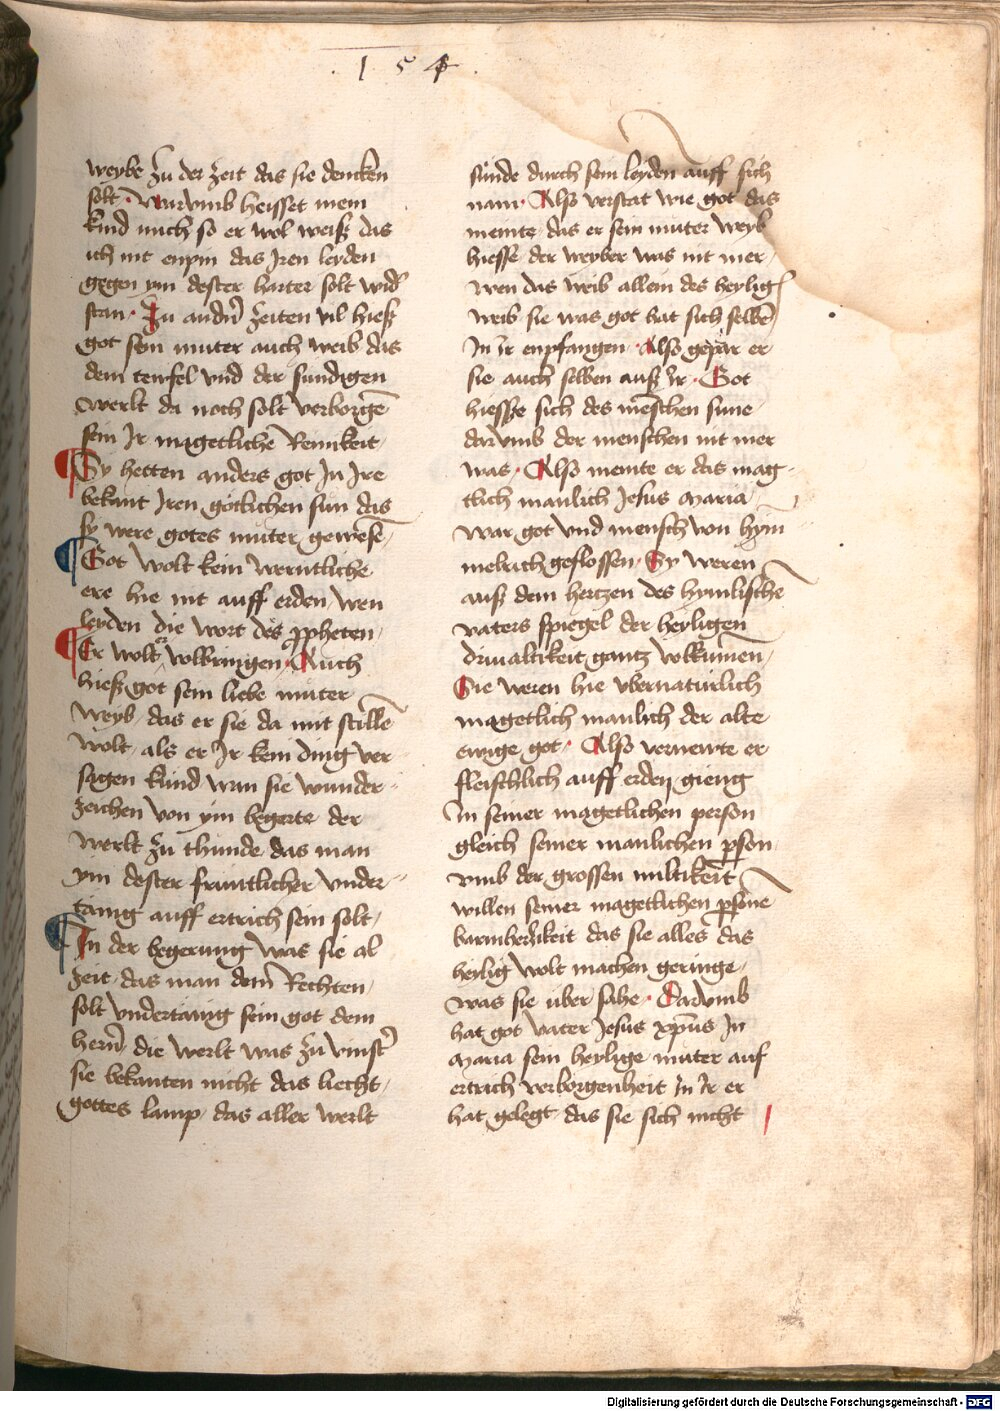 . 1 5 4 .
weybe zu der zeit das sie dencken
solt · Warumb heisset mein
kind mich so er wol weiß das
ich nit enpin das Iren leyden
gegen ym dester harter solt wid
stan · Zu andn zeiten vil hieß
got sein muter auch weib das
dem teufel vnd der sundigen
werlt da noch solt verborgē
sein Ir magetlichē Reinikeit
Sy hetten anders got In Ire
bekant Iren götlichen sun das
sy were gotes muter gewesē
Got wolt kein werntliche
ere hie nit auff erden wen
leyden die wort des ppheten
Er wolt er volbringen · Auch
hieß got sein liebe muter
weyb das er sie da mit stillē
wolt als er Ir kein ding ver
sagen kund wan sie wunder
zeichen von ym begerte der
werlt zu thunde das man
ym dester fruntlicher vnder
tanig auff ertrich sein solt
In der begerung was sie al
zeit das man dem Rechten
solt vndertänig sein got dem
hern die werlt was zu vinst
sie bekanten nicht das liecht
gottes lamp das aller werlt
sünde durch sein leyden auff sich
nam · Also verstat wie got das
meinte das er sein muter weyb
hiesse der weyber was nit mer
wen das weib allein des heylig
weib sie was got hat sich selbē
In Ir enpfangen · Also gepar er
sie auch selben auß Ir · Got
hiesse sich des menschen sune
darumb der menschen nit mer
was · Also meinte er das mag
tlich manlich Jesus Maria
war got vnd mensch von hym
melrich geflossen · Sy weren
auß dem hertzen des hymlischē
vaters spiegel der heyligen
driualtikeit gantz volkumen
Sie weren hie vbernaturlich
magetlich manlich der alte
ewige got · Also vernewte er
fleischlich auff erden gieng
In seiner magetlichen person
gleich seiner manlichen pson
vmb der grossen miltikeit
willen seiner magetlichen psone
barmherzikeit das sie alles das
heilig wolt machen geringe
was sie über sahe · Darumb
hat got vater Jesus xpus In
Maria sein heylige muter auf
ertrich verborgenheit In Ir er
hat gelegt das sie sich nicht
Digitalisierung gefördert durch die Deutsche Forschungsgemeinschaft - DFG